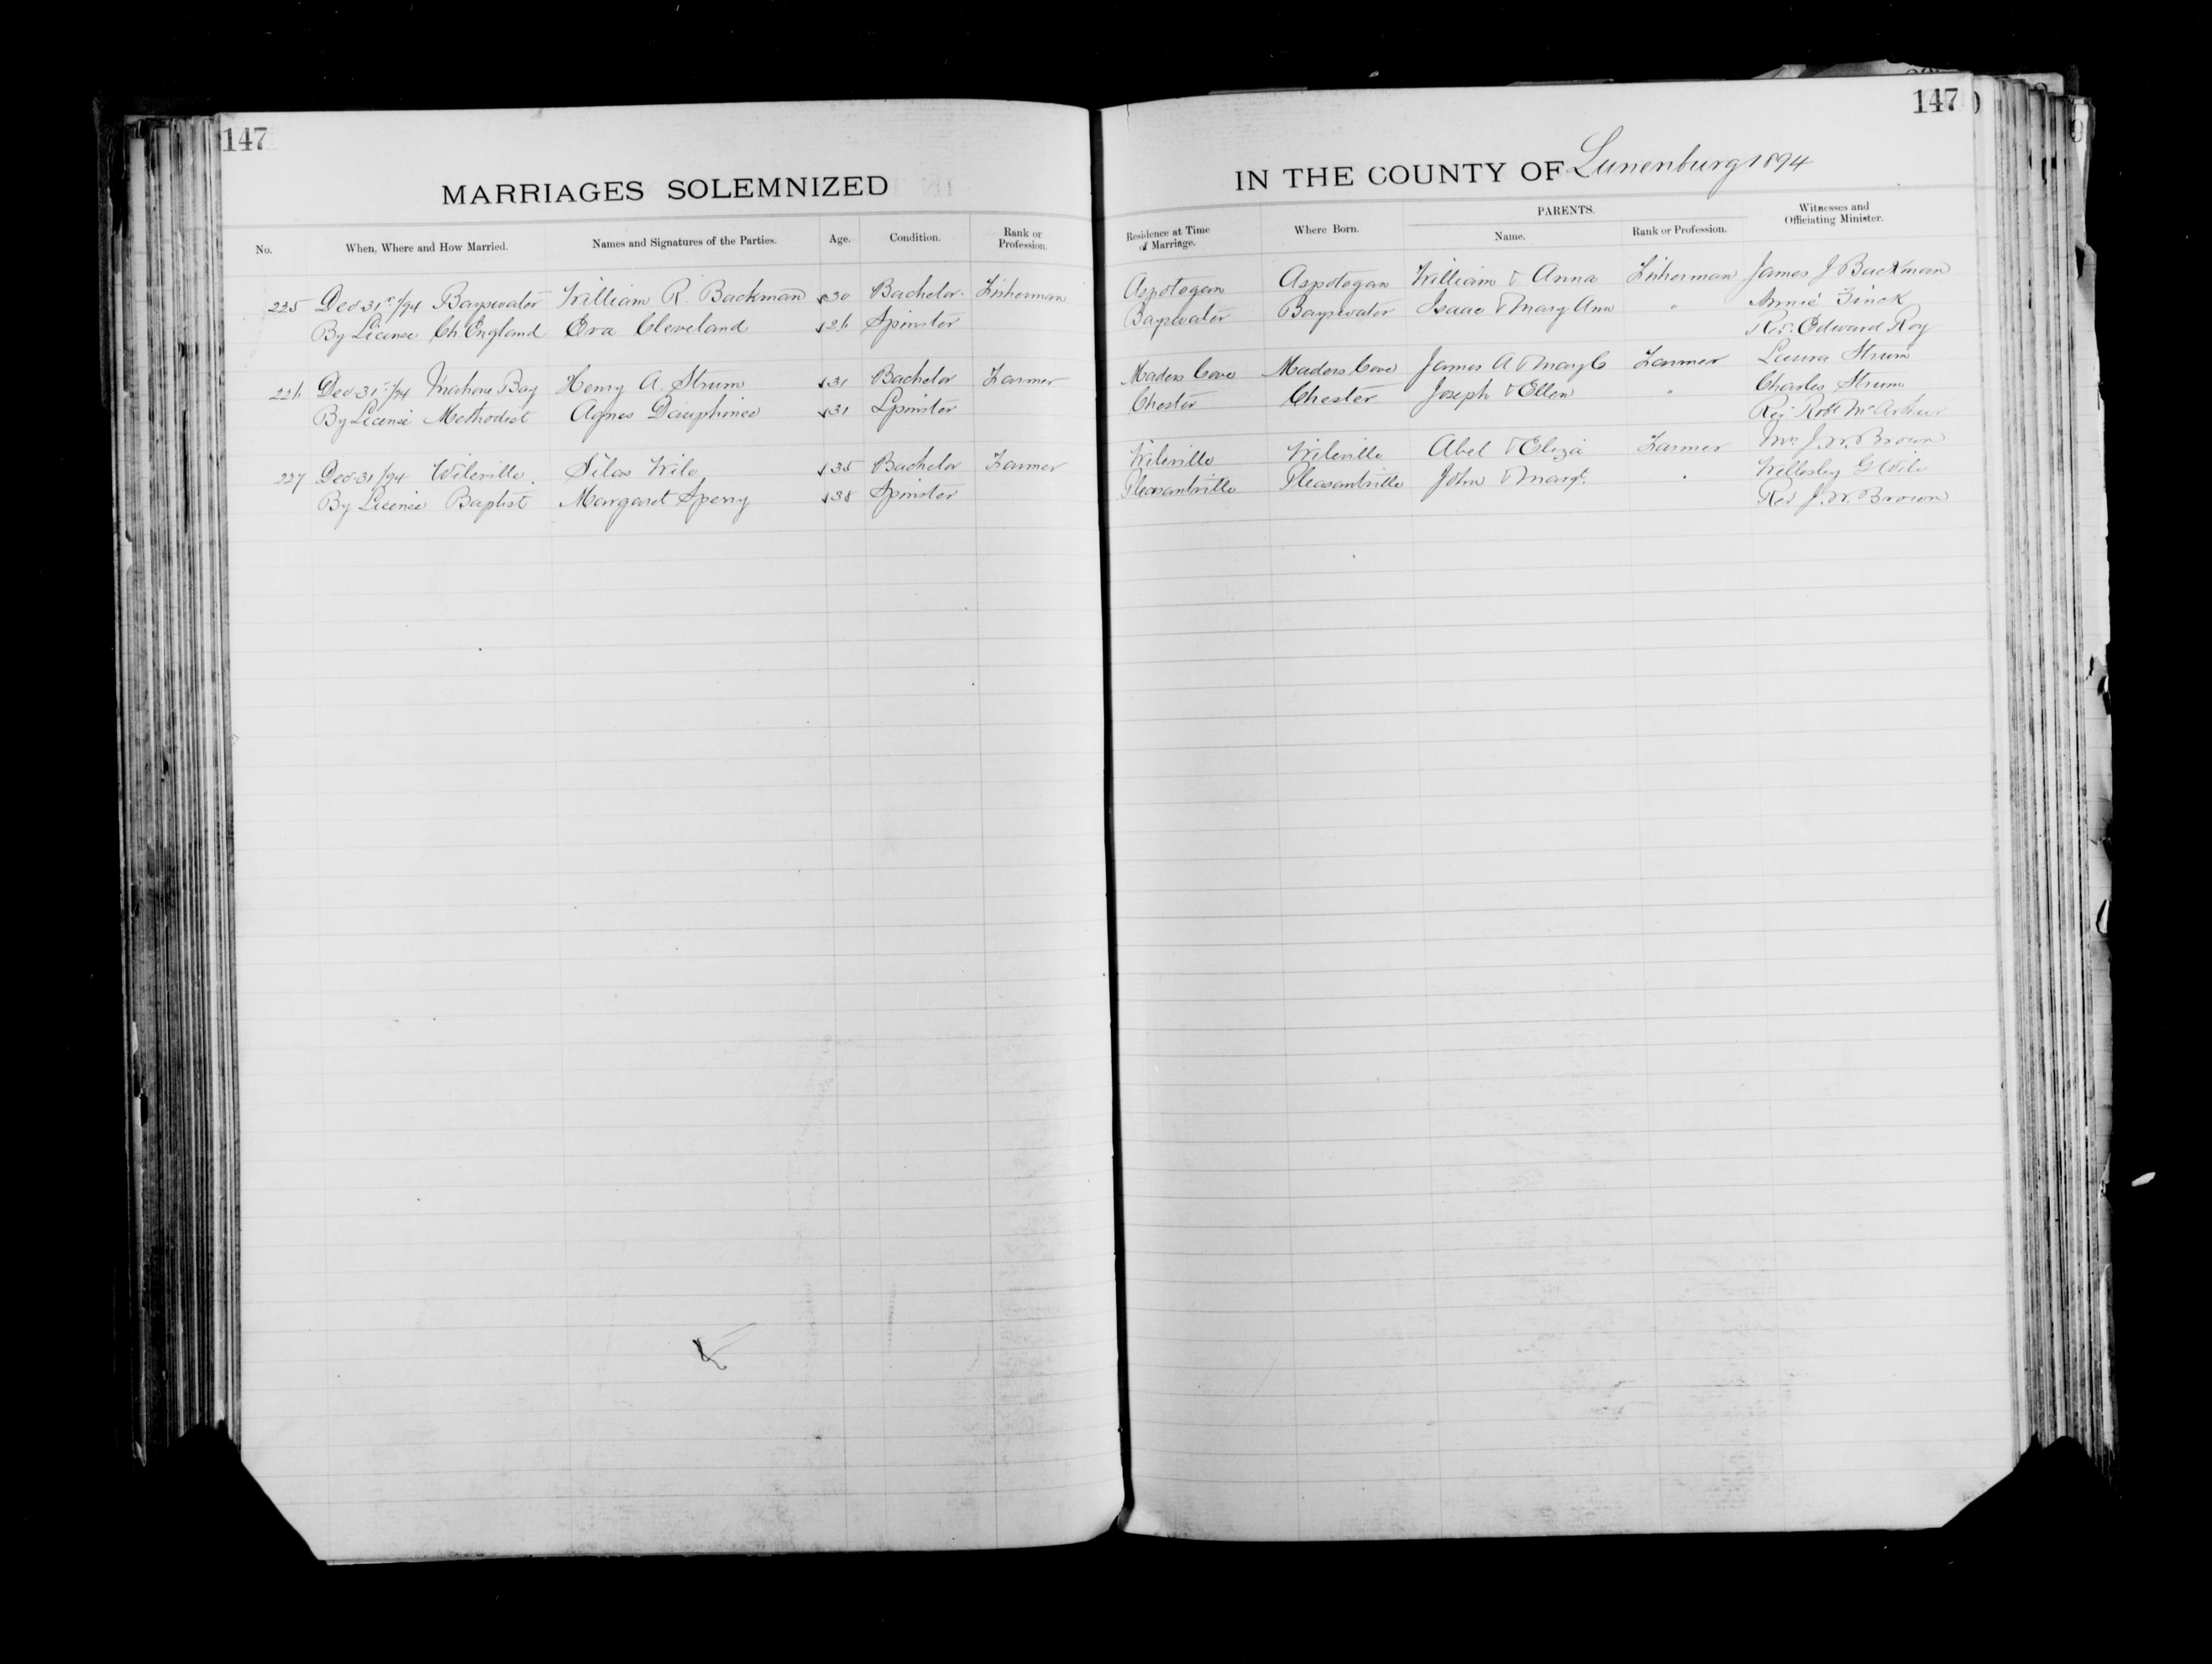 147
147
MARRIAGES SOLEMNIZED IN THE COUNTY OF Lunenburg 1894
No. When, Where and How Married. Names and Signatures of the Parties. Age. Condition. Rank or Profession. Residence at Time of Marriage. Where Born. PARENTS. Name. Rank or Profession. Witnesses and Officiating Minister.
225 Dec 31st/94 Bayswater William R. Backman 30 Bachelor Fisherman Aspotogan Aspotogan William & Anna Fisherman James J Backman
By License Ch. England Eva Cleveland 26 Spinster Bayswater Bayswater Isaac & Mary Ann " Annie Zinck
Rev. Edward Roy
226 Dec 31st/94 Mahone Bay Henry A. Strum 31 Bachelor Farmer Maders Cove Maders Cove James A & Mary C Farmer Laura Strum
By License Methodist Agnes Dauphinee 31 Spinster Chester Chester Joseph & Ellen " Charles Strum
Rev. Robt McArthur
227 Dec 31/94 Wileville Silas Wile 35 Bachelor Farmer Wileville Wileville Abel & Eliza Farmer Mrs J. W. Brown
By License Baptist Margaret Sperry 38 Spinster Pleasantville Pleasantville John & Margt. " Wellesley G Wile
Rev J. W. Brown